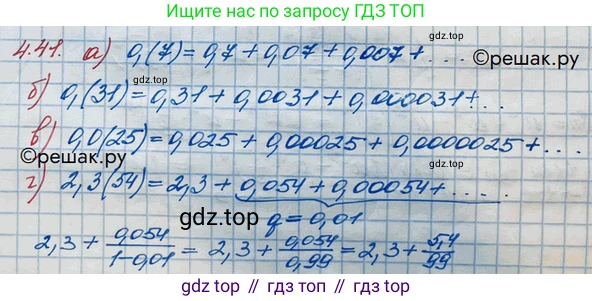 Ищите нас по запросу
ГДЗ ТОП
4.41. а) 0,(7) = 0,7 + 0,07 + 0,007 + ...
©решак.ру
gdz.top
б) 0,(31) = 0,31 + 0,0031 + 0,000031 + ...
в) 0,0(25) = 0,025 + 0,00025 + 0,0000025 + ...
©решак.ру
г) 2,3(54) = 2,3 + 0,054 + 0,00054 + ....
gdz.top
q = 0,01
2,3 + 0,054/(1-0,01) = 2,3 + 0,054/0,99 = 2,3 + 5,4/99
gdz.top
gdz.top // гдз.топ // гдз топ